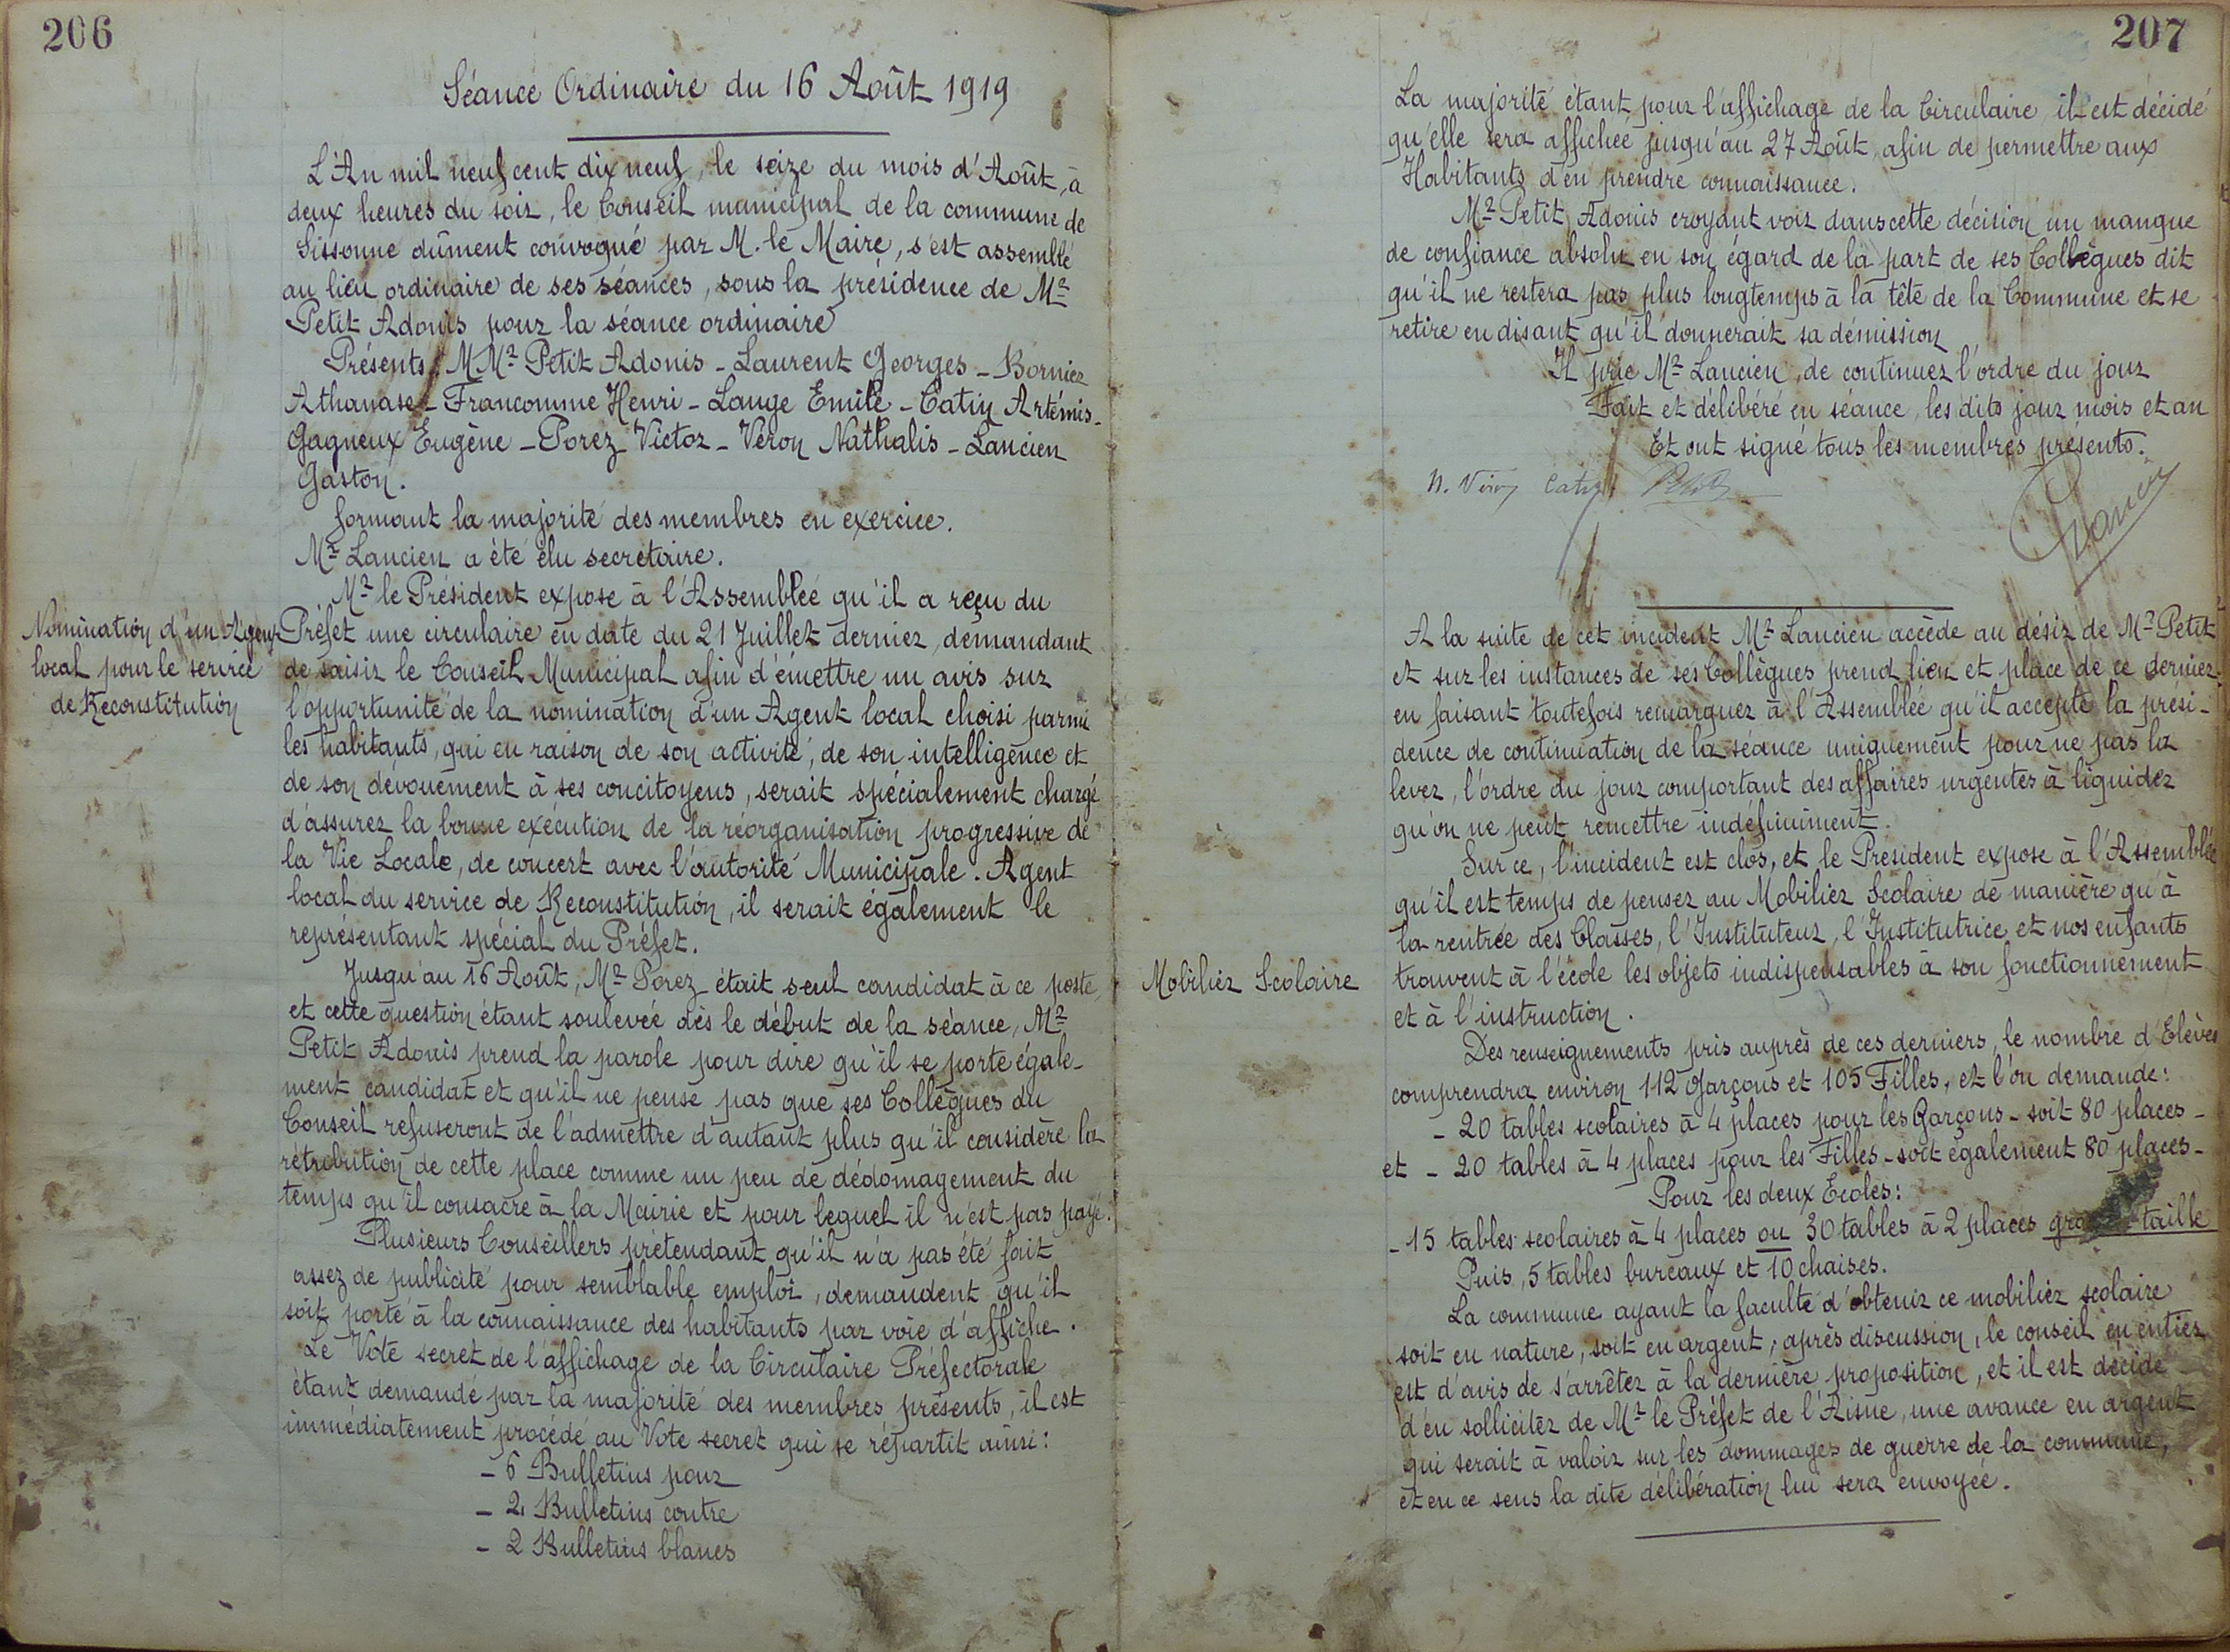 206
Séance Ordinaire du 16 Août 1919
L'An mil neuf cent dix neuf, le seize du mois d'Août, à
deux heures du soir, le Conseil municipal de la commune de
Sissonne dûment convoqué par M. le Maire, s'est assemblé
au lieu ordinaire de ses séances, sous la présidence de Mr
Petit Adonis pour la séance ordinaire
Présents : MMr Petit Adonis - Laurent Georges - Bornier
Athanase - Francomme Henri - Lange Emile - Catin Artémis -
Gagneux Eugène - Porez Victor - Véron Nathalis - Lancien
Gaston.
formant la majorité des membres en exercice.
Mr Lancien a été élu secrétaire.
Mr le Président expose à l'Assemblée qu'il a reçu du
Nomination d'un Agent
local pour le service
de Reconstitution
Préfet une circulaire en date du 21 Juillet dernier, demandant
de saisir le Conseil Municipal afin d'émettre un avis sur
l'opportunité de la nomination d'un Agent local choisi parmi
les habitants, qui en raison de son activité, de son intelligence et
de son dévouement à ses concitoyens, serait spécialement chargé
d'assurer la bonne exécution de la réorganisation progressive de
la Vie Locale, de concert avec l'autorité Municipale. Agent
local du service de Reconstitution, il serait également le
représentant spécial du Préfet.
Jusqu'au 16 Août, Mr Porez était seul candidat à ce poste,
et cette question étant soulevée dès le début de la séance, Mr
Petit Adonis prend la parole pour dire qu'il se porte égale-
ment candidat et qu'il ne pense pas que ses Collègues du
Conseil refuseront de l'admettre d'autant plus qu'il considère la
rétribution de cette place comme un peu de dédomagement du
temps qu'il consacre à la Mairie et pour lequel il n'est pas payé.
Plusieurs Conseillers prétendant qu'il n'a pas été fait
assez de publicité pour semblable emploi, demandent qu'il
soit porté à la connaissance des habitants par voie d'affiche.
Le Vote secret de l'affichage de la Circulaire Préfectorale
étant demandé par la majorité des membres présents, il est
immédiatement procédé au Vote secret qui se répartit ainsi :
- 6 Bulletins pour
- 2 Bulletins contre
- 2 Bulletins blancs
207
La majorité étant pour l'affichage de la Circulaire il est décidé
qu'elle sera affichée jusqu'au 27 Août, afin de permettre aux
Habitants d'en prendre connaissance.
Mr Petit Adonis croyant voir dans cette décision un manque
de confiance absolu en son égard de la part de ses Collègues dit
qu'il ne restera pas plus longtemps à la tête de la Commune et se
retire en disant qu'il donnerait sa démission
Il prie Mr Lancien, de continuer l'ordre du jour
Fait et délibéré en séance, les dits jour mois et an
Et ont signé tous les membres présents.
N. Véron Catin Petit
Lancien
A la suite de cet incident Mr Lancien accède au désir de Mr Petit
et sur les instances de ses Collègues prend lieu et place de ce dernier,
en faisant toutefois remarquer à l'Assemblée qu'il accepte la prési-
dence de continuation de la séance uniquement pour ne pas la
lever, l'ordre du jour comportant des affaires urgentes à liquider
qu'on ne peut remettre indéfiniment.
Sur ce, l'incident est clos, et le Président expose à l'Assemblée
qu'il est temps de penser au Mobilier Scolaire de manière qu'à
la rentrée des Classes, l'Instituteur, l'Institutrice et nos enfants
Mobilier Scolaire
trouvent à l'école les objets indispensables à son fonctionnement
et à l'instruction.
Des renseignements pris auprès de ces derniers, le nombre d'Elèves
comprendra environ 112 Garçons et 105 Filles, et l'on demande :
- 20 tables scolaires à 4 places pour les Garçons - soit 80 places -
et - 20 tables à 4 places pour les Filles - soit également 80 places -
Pour les deux Ecoles :
- 15 tables scolaires à 4 places ou 30 tables à 2 places taille
Puis, 5 tables bureaux et 10 chaises.
La commune ayant la faculté d'obtenir ce mobilier scolaire
soit en nature, soit en argent, après discussion, le conseil en entier
est d'avis de s'arrêter à la dernière proposition, et il est décidé
d'en solliciter de Mr le Préfet de l'Aisne, une avance en argent
qui serait à valoir sur les dommages de guerre de la commune,
et en ce sens la dite délibération lui sera envoyée.